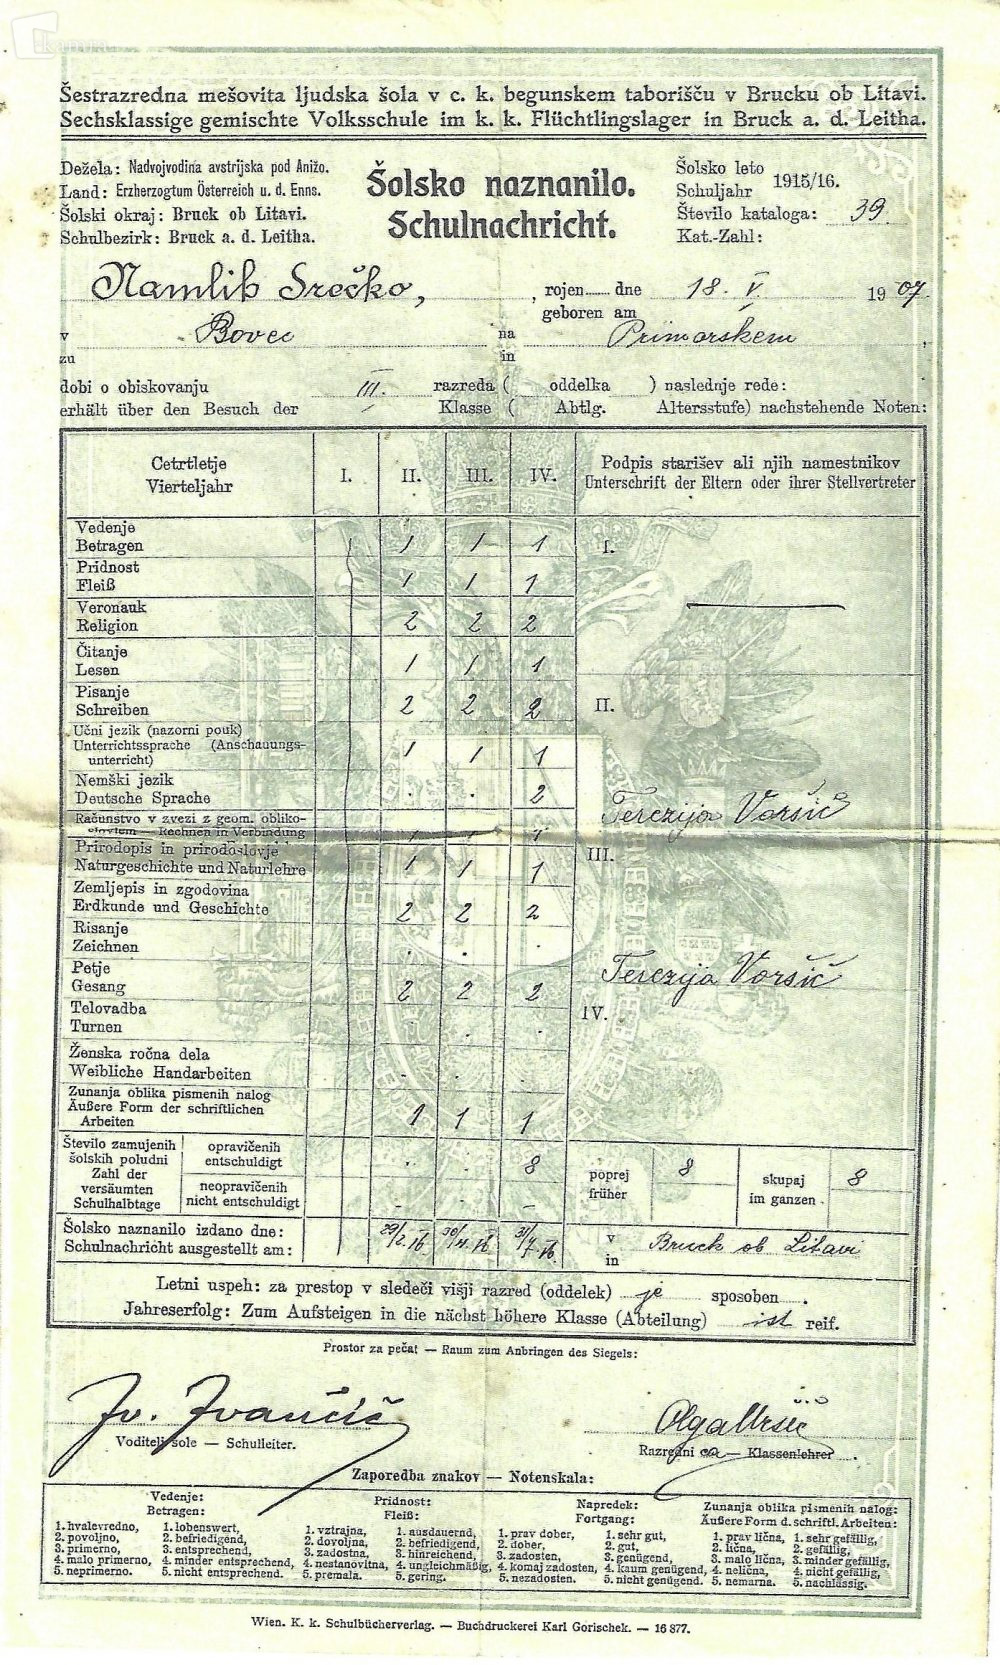 Šestrazredna mešovita ljudska šola v c. k. begunskem taborišču v Brucku ob Litavi.
Sechsklassige gemischte Volksschule im k. k. Flüchtlingslager in Bruck a. d. Leitha.
Dežela: Nadvojvodina avstrijska pod Anižo.
Land: Erzherzogtum Österreich u. d. Enns.
Šolski okraj: Bruck ob Litavi.
Schulbezirk: Bruck a. d. Leitha.
Šolsko naznanilo.
Schulnachricht.
Šolsko leto
Schuljahr 1915/16.
Število kataloga: 39.
Kat.-Zahl:
Namlih Srečko, , rojen dne 18. V. 1907.
geboren am
v Bovec na Primorskem ,
zu in
dobi o obiskovanju III. razreda ( oddelka ) naslednje rede:
erhält über den Besuch der Klasse ( Abtlg. Altersstufe) nachstehende Noten:
Četrtletje I. II. III. IV. Podpis starišev ali njih namestnikov
Vierteljahr Unterschrift der Eltern oder ihrer Stellvertreter
Vedenje
Betragen 1 1 1 I.
Pridnost
Fleiß 1 1 1
Veronauk
Religion 2 2 2
Čitanje
Lesen 1 1 1
Pisanje
Schreiben 2 2 2 II.
Učni jezik (nazorni pouk)
Unterrichtssprache (Anschauungs-
unterricht) 1 1 1
Nemški jezik
Deutsche Sprache . . 2
Terezija Voršič
Računstvo v zvezi z geom. obliko-
slovjem — Rechnen in Verbindung 1 1 1
Prirodopis in prirodoslovje III.
Naturgeschichte und Naturlehre 1 1 1
Zemljepis in zgodovina
Erdkunde und Geschichte 2 2 2
Risanje
Zeichnen . . .
Petje Terezija Voršič
Gesang 2 2 2
Telovadba IV.
Turnen . . .
Ženska ročna dela
Weibliche Handarbeiten . . .
Zunanja oblika pismenih nalog
Äußere Form der schriftlichen
Arbeiten 1 1 1
Število zamujenih
šolskih poludni
Zahl der
versäumten
Schulhalbtage
opravičenih
entschuldigt . . 8
neopravičenih
nicht entschuldigt - - -
poprej 8
früher
skupaj 8
im ganzen
Šolsko naznanilo izdano dne: 29/2. 16 30/4. 16 31/7. 16. v Bruck ob Litavi
Schulnachricht ausgestellt am: in
Letni uspeh: za prestop v sledeči višji razred (oddelek) je sposoben .
Jahreserfolg: Zum Aufsteigen in die nächst höhere Klasse (Abteilung) ist reif.
Prostor za pečat — Raum zum Anbringen des Siegels:
Iv. Ivančič
Voditelj šole — Schulleiter.
Olga Uršič
Razredni ca — Klassenlehrer .
Zaporedba znakov — Notenskala:
Vedenje:
Betragen:
1. hvalevredno, 1. lobenswert,
2. povoljno, 2. befriedigend,
3. primerno, 3. entsprechend,
4. malo primerno, 4. minder entsprechend,
5. neprimerno. 5. nicht entsprechend.
Pridnost:
Fleiß:
1. vztrajna, 1. ausdauernd,
2. dovoljna, 2. befriedigend,
3. zadostna, 3. hinreichend,
4. nestanovitna, 4. ungleichmäßig,
5. premala. 5. gering.
Napredek:
Fortgang:
1. prav dober, 1. sehr gut,
2. dober, 2. gut,
3. zadosten, 3. genügend,
4. komaj zadosten, 4. kaum genügend,
5. nezadosten. 5. nicht genügend.
Zunanja oblika pismenih nalog:
Äußere Form d. schriftl. Arbeiten:
1. prav lična, 1. sehr gefällig,
2. lična, 2. gefällig,
3. malo lična, 3. minder gefällig,
4. nelična, 4. nicht gefällig,
5. nemarna. 5. nachlässig.
Wien. K. k. Schulbücherverlag. — Buchdruckerei Karl Gorischek. — 16 877.